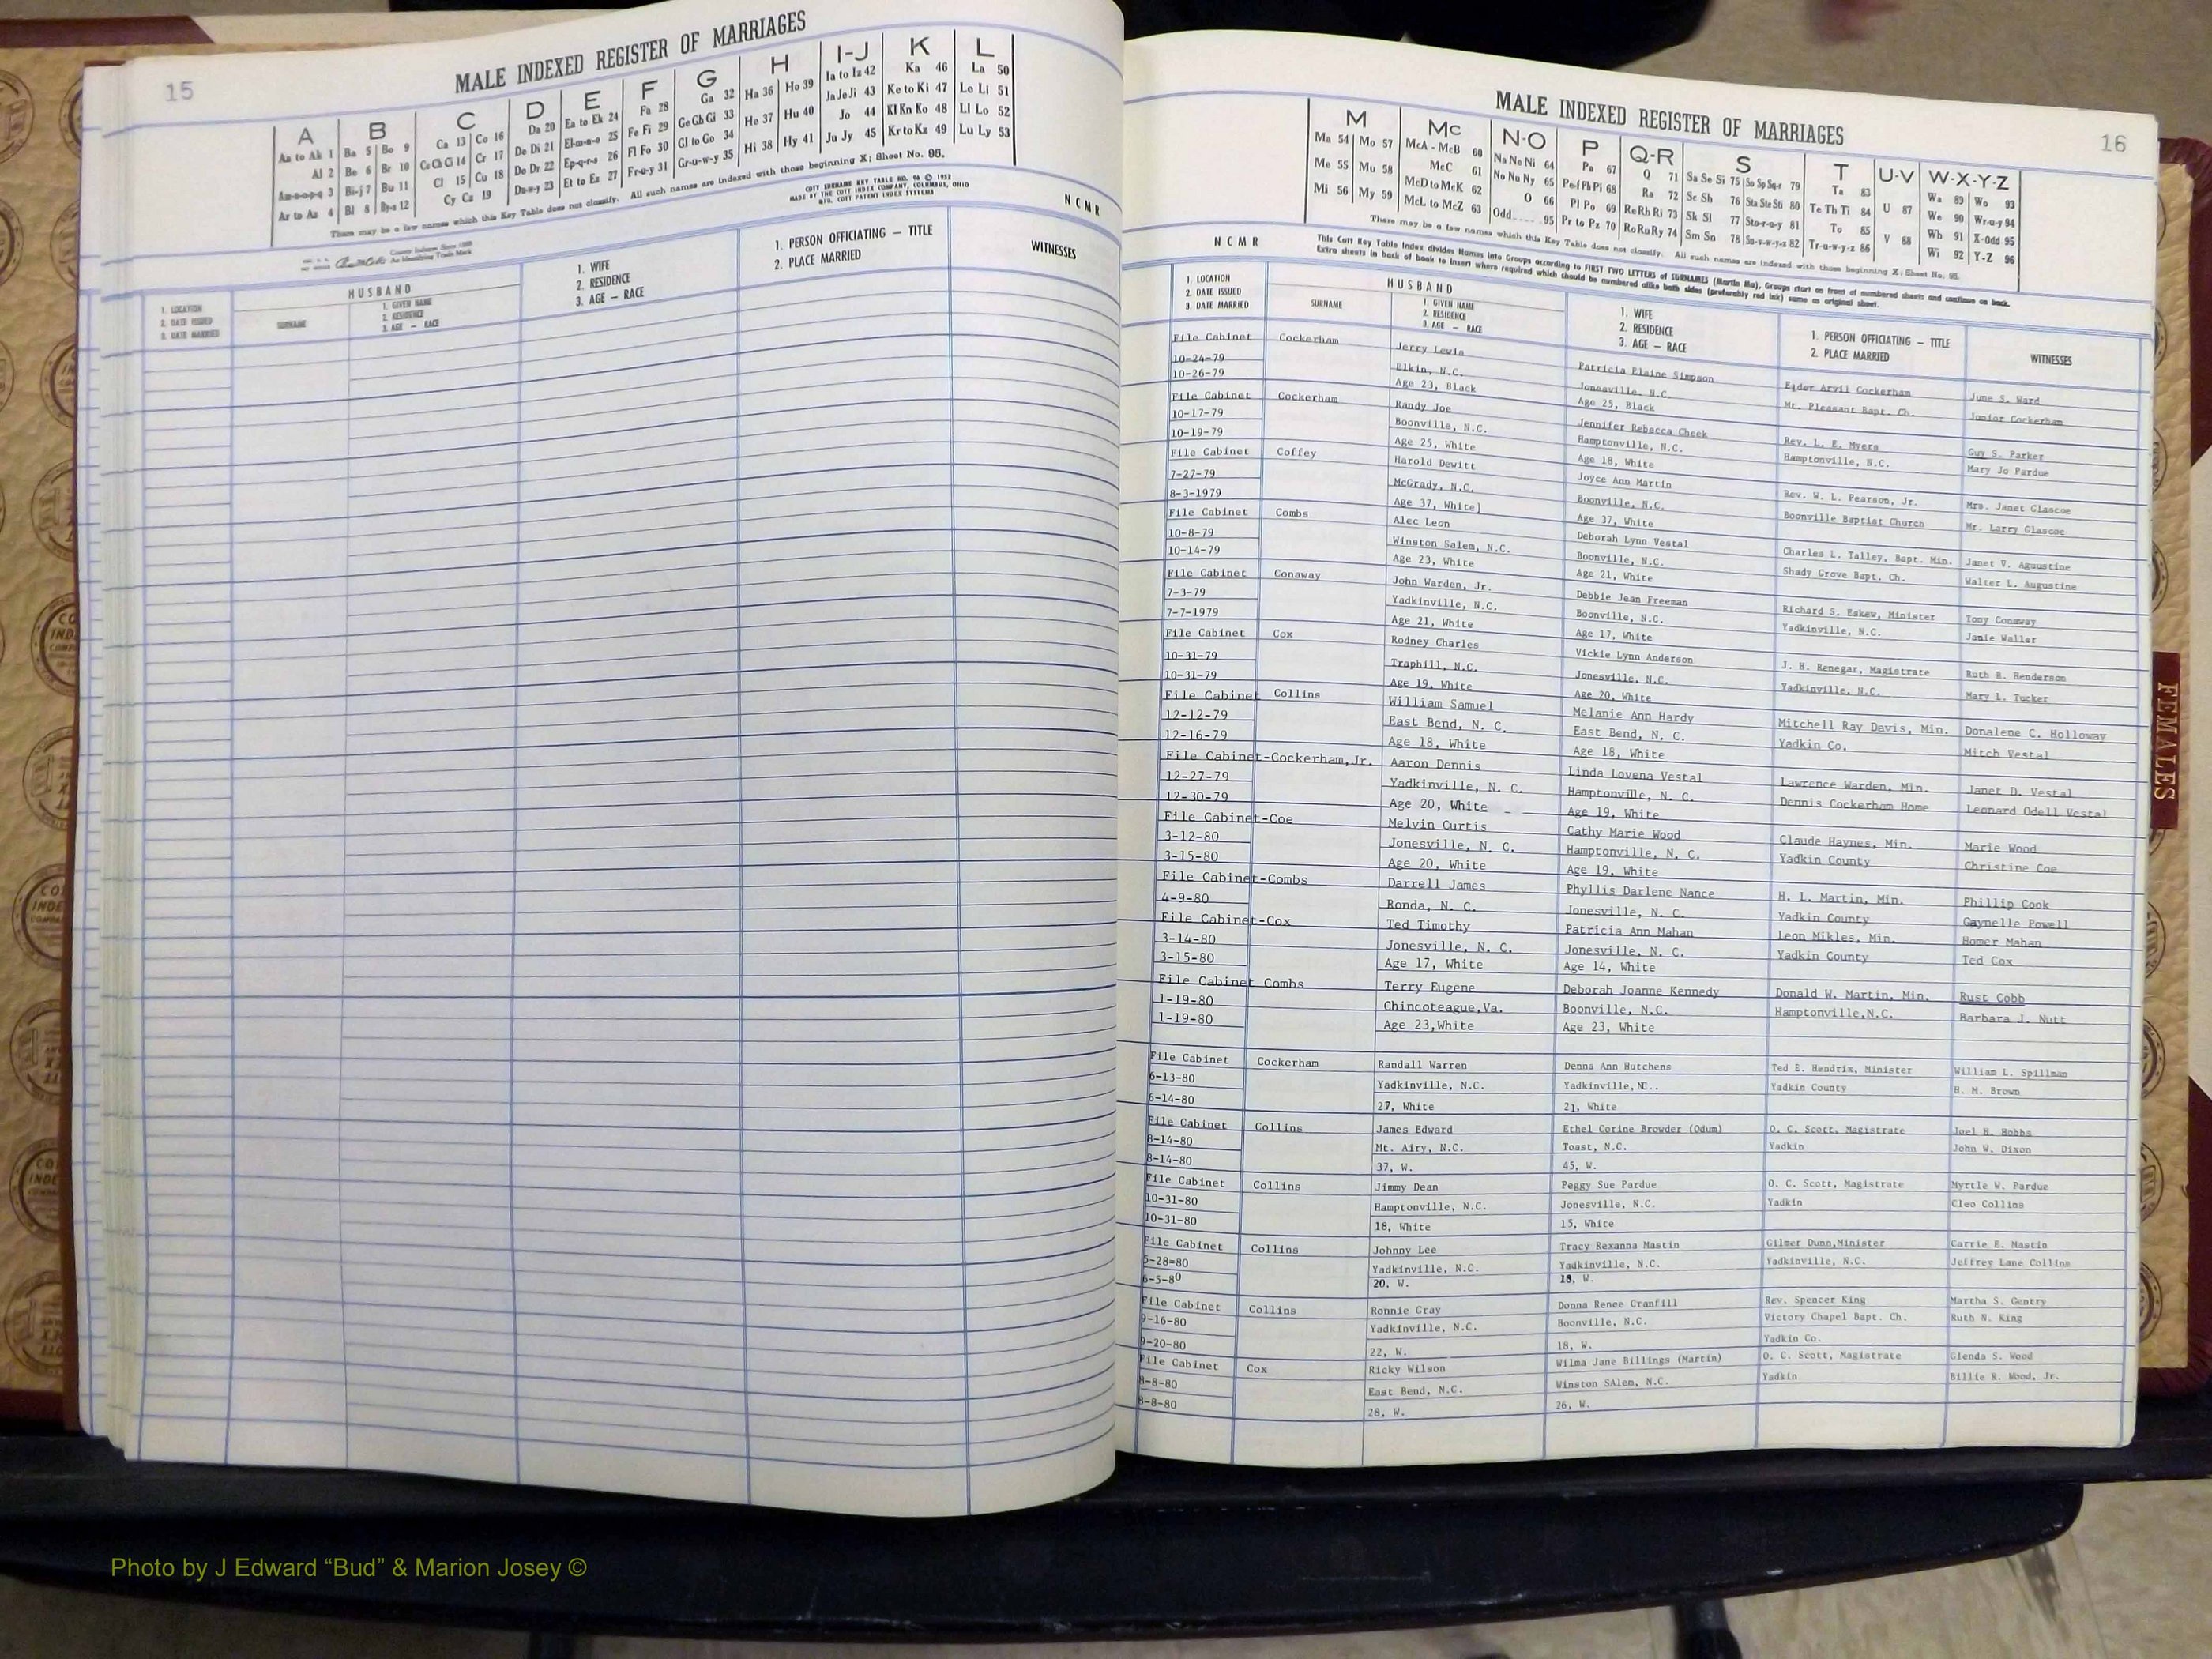 15
MALE INDEXED REGISTER OF MARRIAGES
A B C D E F G H I-J K L
Aa to Ak 1 Ba 5 Bo 9 Ca 13 Co 16 Da 20 Ea to Ek 24 Fa 28 Ga 32 Ha 36 Ho 39 Ia to Iz 42 Ka 46 La 50
Al 2 Be 6 Br 10 Ce Ch Ci 14 Cr 17 De Di 21 El-m-n-o 25 Fe Fi 29 Ge Gh Gi 33 He 37 Hu 40 Ja Je Ji 43 Ke to Ki 47 Le Li 51
Am-n-o-p-q 3 Bi-j 7 Bu 11 Cl 15 Cu 18 Do Dr 22 Ep-q-r-s 26 Fl Fo 30 Gl to Go 34 Hi 38 Hy 41 Jo 44 Kl Kn Ko 48 Ll Lo 52
Ar to Az 4 Bl 8 By-z 12 Cy Cz 19 Du-w-y 23 Et to Ez 27 Fr-u-y 31 Gr-u-w-y 35 Ju Jy 45 Kr to Kz 49 Lu Ly 53
There may be a few names which this Key Table does not classify. All such names are indexed with those beginning X; Sheet No. 95.
COTT SURNAME KEY TABLE NO. 96 © 1953
BY THE COTT INDEX COMPANY, COLUMBUS, OHIO
MFG. COTT PATENT INDEX SYSTEMS
County Indexes Since 1888
An Identifying Trade Mark
N C M R
1. LOCATION
2. DATE ISSUED
3. DATE MARRIED
HUSBAND
SURNAME
1. GIVEN NAME
2. RESIDENCE
3. AGE — RACE
1. WIFE
2. RESIDENCE
3. AGE — RACE
1. PERSON OFFICIATING — TITLE
2. PLACE MARRIED
WITNESSES
MALE INDEXED REGISTER OF MARRIAGES
16
M Mc N-O P Q-R S T U-V W-X-Y-Z
Ma 54 Mo 57 McA - McB 60 Na Ne Ni 64 Pa 67 Q 71 Sa Se Si 75 So Sp Sq-r 79 Ta 83 U 87 Wa 89 Wo 93
Me 55 Mu 58 McC 61 No Nu Ny 65 Pe-f Ph Pi 68 Ra 72 Sc Sh 76 Sta Ste Sti 80 Te Th Ti 84 V 88 We 90 Wr-u-y 94
Mi 56 My 59 McD to McK 62 O 66 Pl Po 69 Re Rh Ri 73 Sk Sl 77 Sto-r-u-y 81 To 85 Wh 91 X-Odd 95
McL to McZ 63 Odd 95 Pr to Pz 70 Ro Ru Ry 74 Sm Sn 78 Su-v-w-y-z 82 Tr-u-w-y-z 86 Wi 92 Y-Z 96
There may be a few names which this Key Table does not classify. All such names are indexed with those beginning X; Sheet No. 95.
This Cott Key Table Index divides Names into Groups according to FIRST TWO LETTERS of SURNAMES (Martin Ma), Groups start on front of numbered sheets and continue on back.
Extra sheets in back of book to insert where required which should be numbered alike both sides (preferably red ink) same as original sheet.
N C M R
1. LOCATION
2. DATE ISSUED
3. DATE MARRIED
HUSBAND
SURNAME
1. GIVEN NAME
2. RESIDENCE
3. AGE — RACE
1. WIFE
2. RESIDENCE
3. AGE — RACE
1. PERSON OFFICIATING — TITLE
2. PLACE MARRIED
WITNESSES
File Cabinet Cockerham Jerry Lewis Patricia Elaine Simpson Elder Arvil Cockerham June S. Ward
10-24-79 Elkin, N.C. Jonesville, N.C. Mt. Pleasant Bapt. Ch. Junior Cockerham
10-26-79 Age 23, Black Age 25, Black
File Cabinet Cockerham Randy Joe Jennifer Rebecca Cheek Rev. L. E. Myers Guy S. Parker
10-17-79 Boonville, N.C. Hamptonville, N.C. Hamptonville, N.C. Mary Jo Pardue
10-19-79 Age 25, White Age 18, White
File Cabinet Coffey Harold Dewitt Joyce Ann Martin Rev. W. L. Pearson, Jr. Mrs. Janet Glascoe
7-27-79 McGrady, N.C. Boonville, N.C. Boonville Baptist Church Mr. Larry Glascoe
8-3-1979 Age 37, White] Age 37, White
File Cabinet Combs Alec Leon Deborah Lynn Vestal Charles L. Talley, Bapt. Min. Janet V. Aguustine
10-8-79 Winston Salem, N.C. Boonville, N.C. Shady Grove Bapt. Ch. Walter L. Augustine
10-14-79 Age 23, White Age 21, White
File Cabinet Conaway John Warden, Jr. Debbie Jean Freeman Richard S. Eskew, Minister Tony Conaway
7-3-79 Yadkinville, N.C. Boonville, N.C. Yadkinville, N.C. Janie Waller
7-7-1979 Age 21, White Age 17, White
File Cabinet Cox Rodney Charles Vickie Lynn Anderson J. H. Renegar, Magistrate Ruth R. Henderson
10-31-79 Traphill, N.C. Jonesville, N.C. Yadkinville, N.C. Mary L. Tucker
10-31-79 Age 19, White Age 20, White
File Cabinet Collins William Samuel Melanie Ann Hardy Mitchell Ray Davis, Min. Donalene C. Holloway
12-12-79 East Bend, N. C. East Bend, N. C. Yadkin Co. Mitch Vestal
12-16-79 Age 18, White Age 18, White
File Cabinet-Cockerham,Jr. Aaron Dennis Linda Lovena Vestal Lawrence Warden, Min. Janet D. Vestal
12-27-79 Yadkinville, N. C. Hamptonville, N. C. Dennis Cockerham Home Leonard Odell Vestal
12-30-79 Age 20, White Age 19, White
File Cabinet-Coe Melvin Curtis Cathy Marie Wood Claude Haynes, Min. Marie Wood
3-12-80 Jonesville, N. C. Hamptonville, N. C. Yadkin County Christine Coe
3-15-80 Age 20, White Age 19, White
File Cabinet-Combs Darrell James Phyllis Darlene Nance H. L. Martin, Min. Phillip Cook
4-9-80 Ronda, N. C. Jonesville, N. C. Yadkin County Gaynelle Powell
File Cabinet-Cox Ted Timothy Patricia Ann Mahan Leon Mikles, Min. Homer Mahan
3-14-80 Jonesville, N. C. Jonesville, N. C. Yadkin County Ted Cox
3-15-80 Age 17, White Age 14, White
File Cabinet Combs Terry Eugene Deborah Joanne Kennedy Donald W. Martin, Min. Rust Cobb
1-19-80 Chincoteague,Va. Boonville, N.C. Hamptonville,N.C. Barbara J. Nutt
1-19-80 Age 23,White Age 23, White
File Cabinet Cockerham Randall Warren Denna Ann Hutchens Ted E. Hendrix, Minister William L. Spillman
6-13-80 Yadkinville, N.C. Yadkinville, NC.. Yadkin County H. M. Brown
6-14-80 27, White 21, White
File Cabinet Collins James Edward Ethel Corine Browder (Odum) O. C. Scott, Magistrate Joel H. Hobbs
8-14-80 Mt. Airy, N.C. Toast, N.C. Yadkin John W. Dixon
8-14-80 37, W. 45, W.
File Cabinet Collins Jimmy Dean Peggy Sue Pardue O. C. Scott, Magistrate Myrtle W. Pardue
10-31-80 Hamptonville, N.C. Jonesville, N.C. Yadkin Cleo Collins
10-31-80 18, White 15, White
File Cabinet Collins Johnny Lee Tracy Rexanna Mastin Gilmer Dunn,Minister Carrie E. Mastin
5-28=80 Yadkinville, N.C. Yadkinville, N.C. Yadkinville, N.C. Jeffrey Lane Collins
6-5-80 20, W. 18, W.
File Cabinet Collins Ronnie Gray Donna Renee Cranfill Rev. Spencer King Martha S. Gentry
9-16-80 Yadkinville, N.C. Boonville, N.C. Victory Chapel Bapt. Ch. Ruth N. King
9-20-80 22, W. 18, W. Yadkin Co.
File Cabinet Cox Ricky Wilson Wilma Jane Billings (Martin) O. C. Scott, Magistrate Glenda S. Wood
8-8-80 East Bend, N.C. Winston SAlem, N.C. Yadkin Billie R. Wood, Jr.
8-8-80 28, W. 26, W.
FEMALES
Photo by J Edward “Bud” & Marion Josey ©